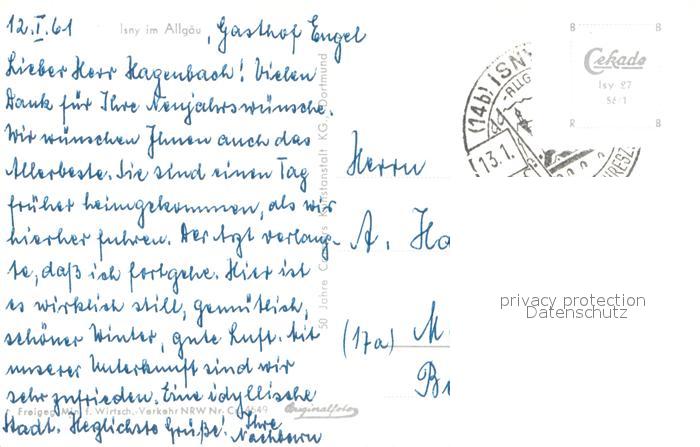 12.I.61 Isny im Allgäu, Gasthof Engel
Lieber Herr Hagenbach! Vielen
Dank für Ihre Neujahrswünsche.
Wir wünschen Ihnen auch das
Allerbeste. Sie sind einen Tag
früher heimgekommen, als wir
hierher fuhren. Der Arzt verlang-
te, daß ich fortgehe. Hier ist
es wirklich still, gemütlich,
schöner Winter, gute Luft. Mit
unserer Unterkunft sind wir
sehr zufrieden. Eine idyllische
Stadt. Herzlichste Grüße! Ihre
Nachbarn
Freigeg. Min. f. Wirtsch.-Verkehr NRW Nr.
Originalfoto
50 Jahre Kunstanstalt KG. Dortmund
B B
Cekade
Isy 27
56/1
R B
(14b) ISNY
-ALLG
13.1.
Herrn
A. Ha
(17a) M
Br
privacy protection
Datenschutz